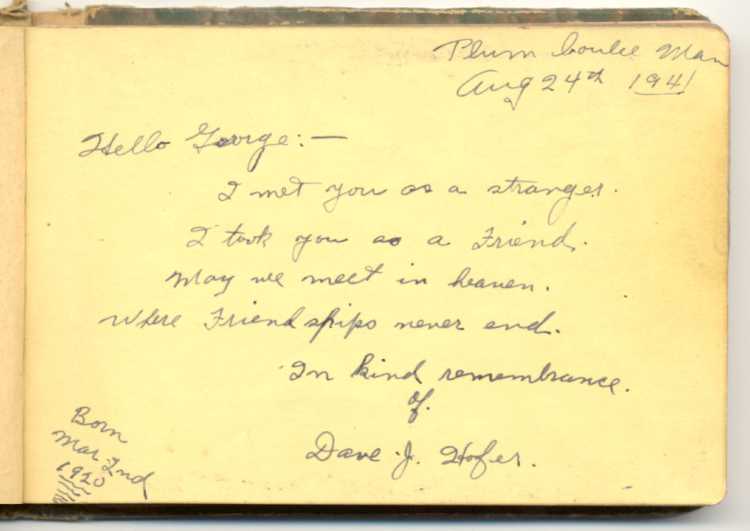 Plum Coulee Man
Aug 24th 1941
Hello George:—
I met you as a stranger.
I took you as a Friend.
May we meet in heaven.
Where Friendships never end.
In kind remembrance.
of.
Dave J. Hofer.
Born
Mar 2nd
1920